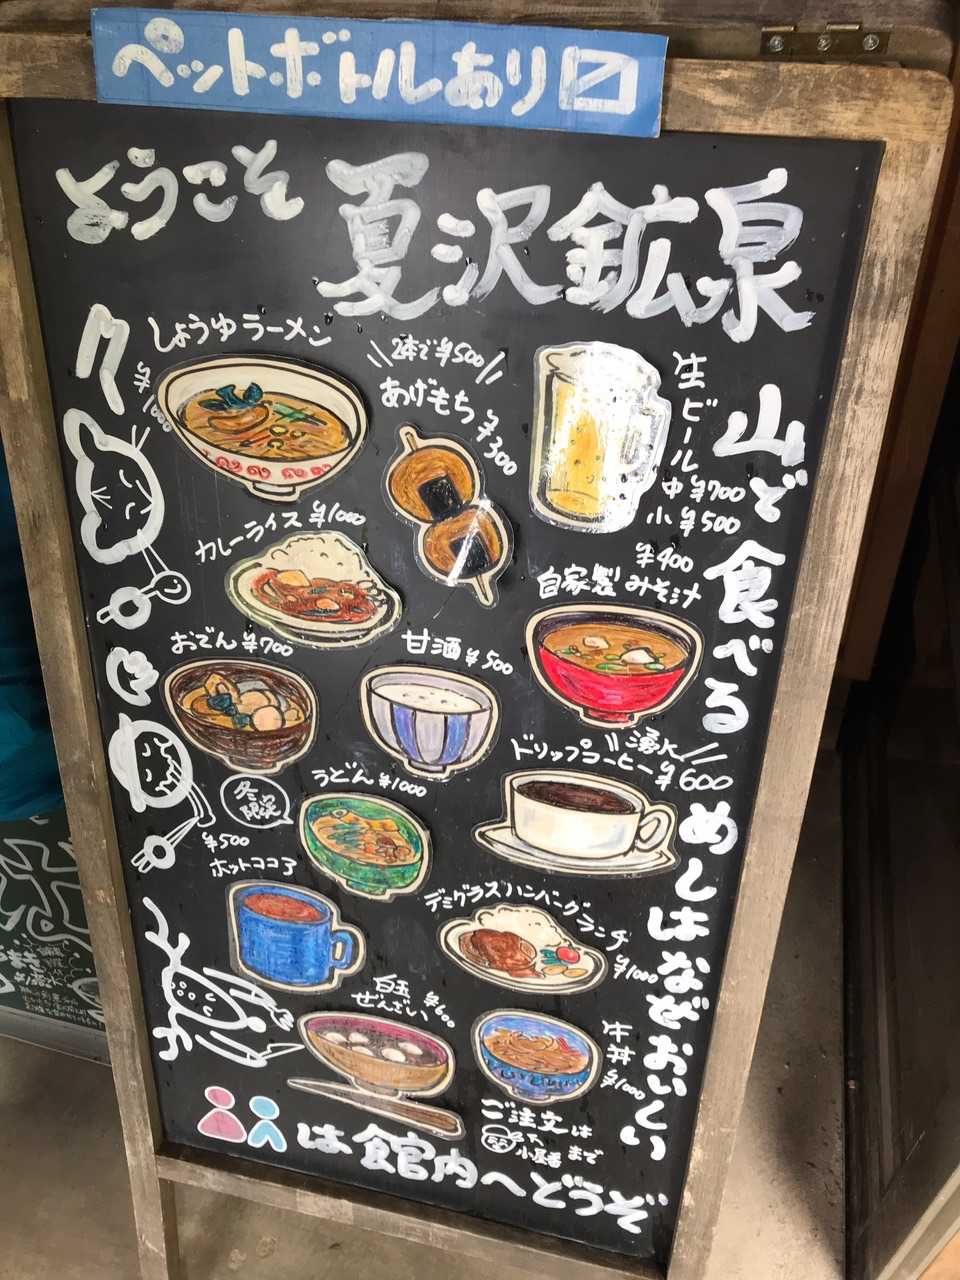 ペットボトルあり〼
ようこそ
夏沢鉱泉
山で食べる
めしはなぜおいしい
しょうゆラーメン
¥1000
\\2本で¥500//
あげもち
¥300
生ビール
中¥700
小¥500
カレーライス ¥1000
¥400
自家製 みそ汁
おでん ¥700
甘酒 ¥500
\\湧水//
ドリップコーヒー ¥600
うどん ¥1000
冬限定
¥500
ホットココア
デミグラスハンバーグランチ
¥1000
白玉ぜんざい ¥600
牛丼
¥1000
ご注文は
小屋番 まで
は館内へどうぞ